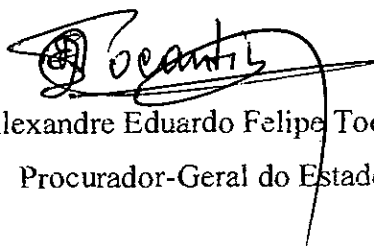 Tocantins
Alexandre Eduardo Felipe Toc
Procurador-Geral do Estado